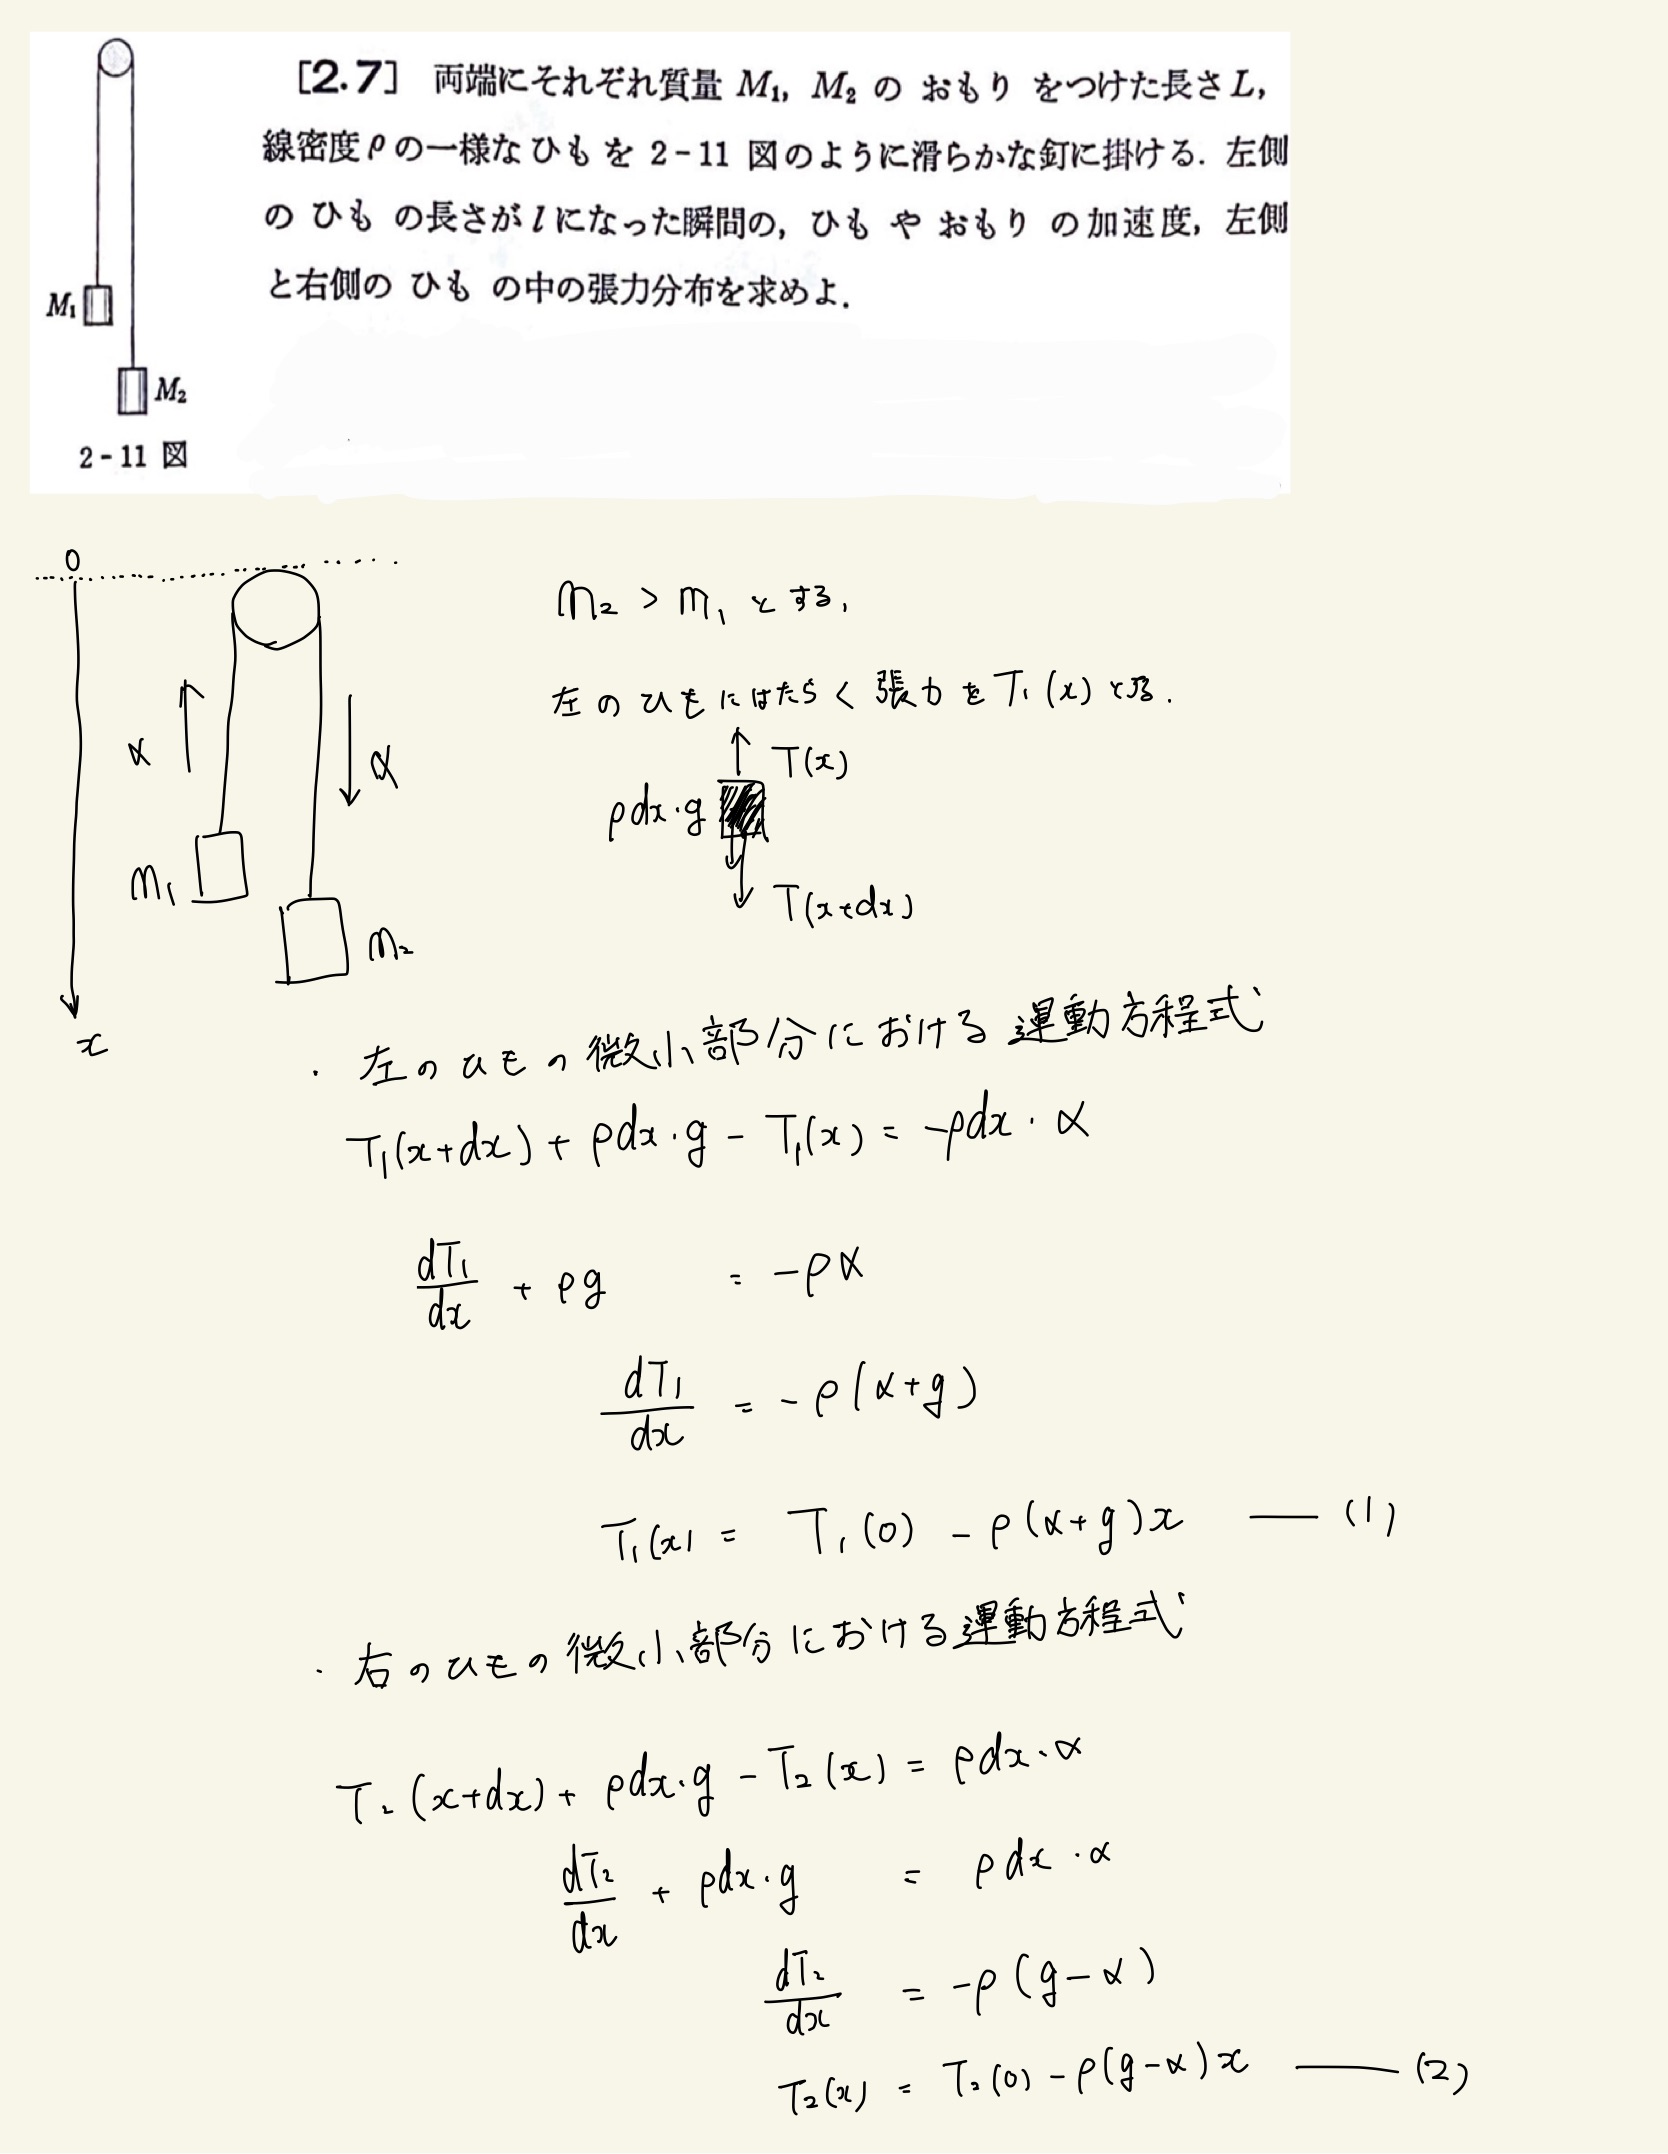 [2.7] 両端にそれぞれ質量 M₁, M₂ の おもり をつけた長さ L,
線密度 ρ の一様な ひも を 2-11 図のように滑らかな釘に掛ける. 左側
の ひも の長さが l になった瞬間の, ひも や おもり の加速度, 左側
と右側の ひも の中の張力分布を求めよ.
M₁
M₂
2-11 図
0
α
α
m₁
m₂
x
m₂ > m₁ とする,
左のひもにはたらく張力を T₁(x) とする.
T(x)
ρdx・g
T(x+dx)
・左のひもの微小部分における運動方程式
T₁(x+dx) + ρdx・g - T₁(x) = -ρdx・α
dT₁/dx + ρg = -ρα
dT₁/dx = -ρ(α+g)
T₁(x) = T₁(0) - ρ(α+g)x —— (1)
・右のひもの微小部分における運動方程式
T₂(x+dx) + ρdx・g - T₂(x) = ρdx・α
dT₂/dx + ρdx・g = ρdx・α
dT₂/dx = -ρ(g-α)
T₂(x) = T₂(0) - ρ(g-α)x —— (2)